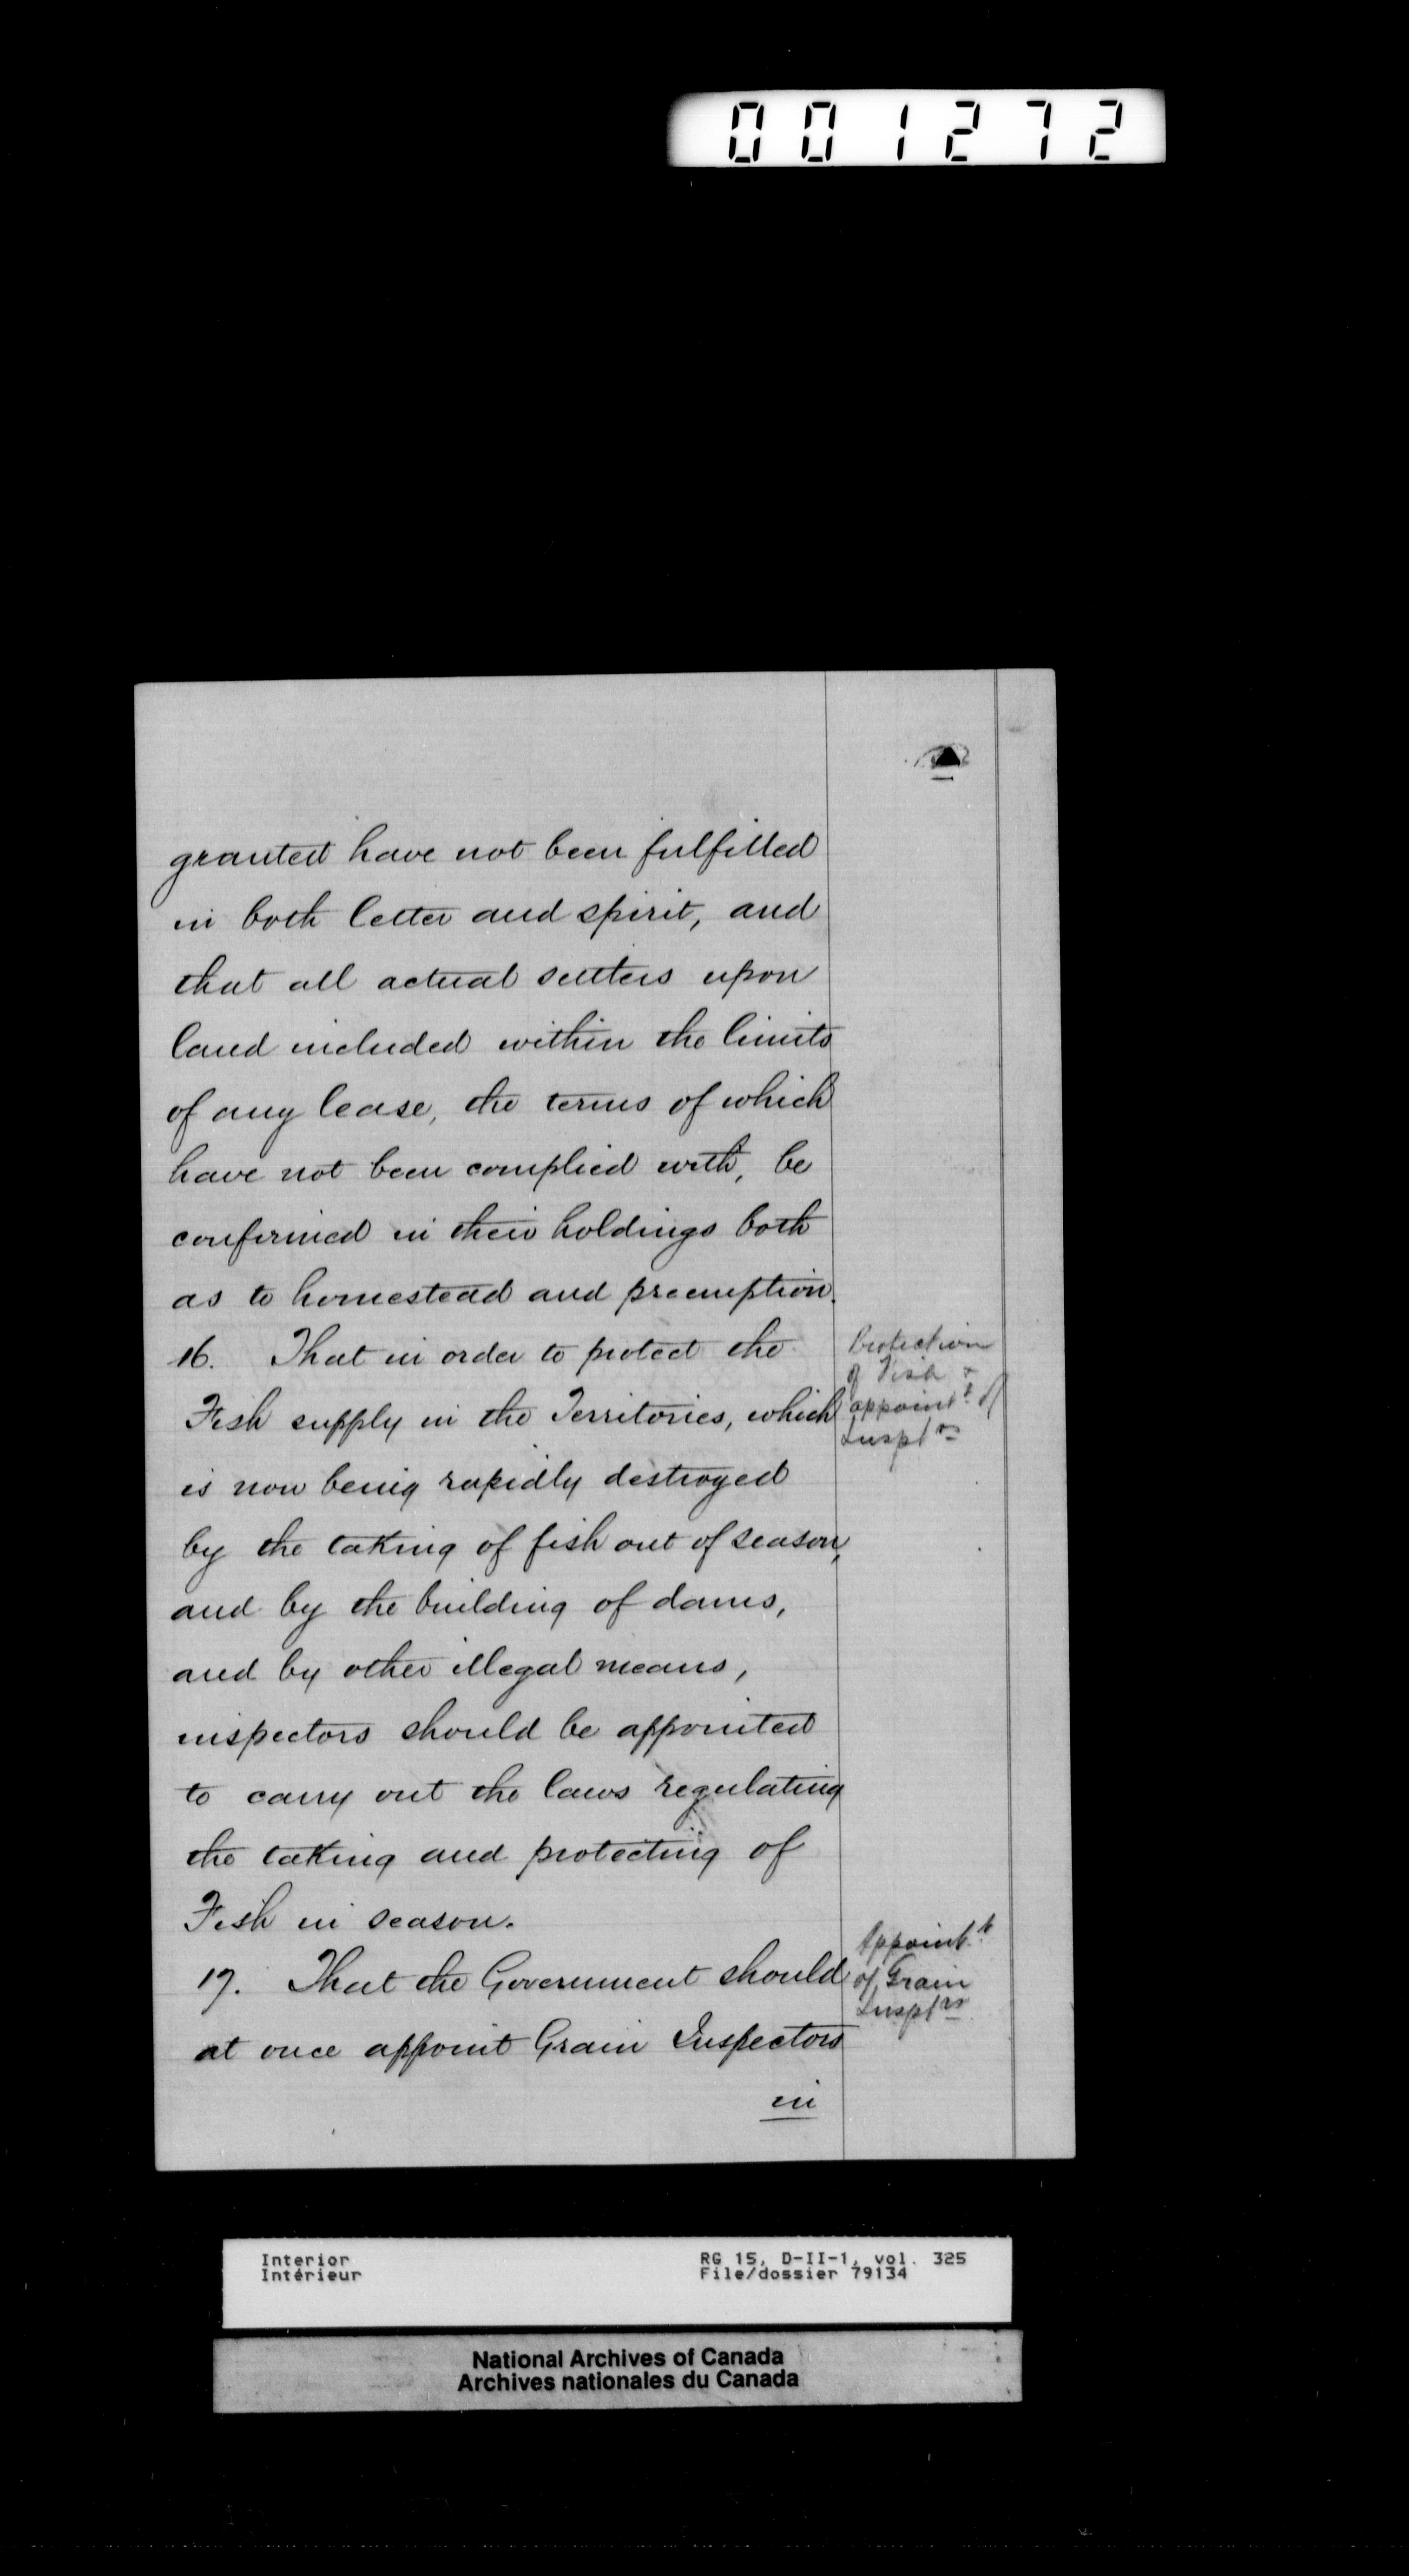 001272
granted have not been fulfilled
in both letter and spirit, and
that all actual settlers upon
land included within the limits
of any lease, the terms of which
have not been complied with, be
confirmed in their holdings both
as to homestead and preemption.
16. That in order to protect the
Fish supply in the Territories, which
is now being rapidly destroyed
by the taking of fish out of season,
and by the building of dams,
and by other illegal means,
inspectors should be appointed
to carry out the laws regulating
the taking and protecting of
Fish in season.
17. That the Government should
at once appoint Grain Inspectors
in
Protection
of Fish &
appoint.t of
Insptrs
Appoint.t
of Grain
Insptrs
Interior
Intérieur
RG 15, D-II-1, vol. 325
File/dossier 79134
National Archives of Canada
Archives nationales du Canada